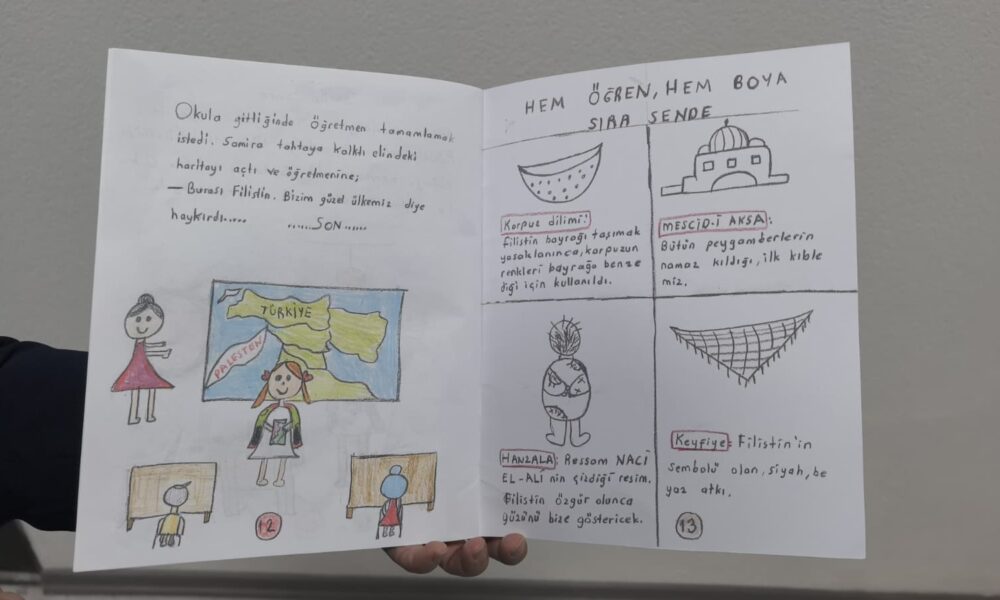 Okula gittiğinde öğretmen tamamlamak
istedi. Samira tahtaya kalktı elindeki
haritayı açtı ve öğretmenine;
— Burası Filistin. Bizim güzel ülkemiz diye
haykırdı.....
......SON......
TÜRKİYE
PALESTON
12
HEM ÖĞREN, HEM BOYA
SIRA SENDE
Karpuz dilimi:
Filistin bayrağı taşımak
yasaklanınca, karpuzun
renkleri bayrağa benze
diği için kullanıldı.
MESCİD-İ AKSA:
Bütün peygamberlerin
namaz kıldığı, ilk kıble
miz.
HANZALA: Ressam NACİ
EL-ALİ nin çizdiği resim.
Filistin özgür olunca
yüzünü bize göstericek.
Keyfiye: Filistin'in
sembolü olan, siyah, be
yaz atkı.
13